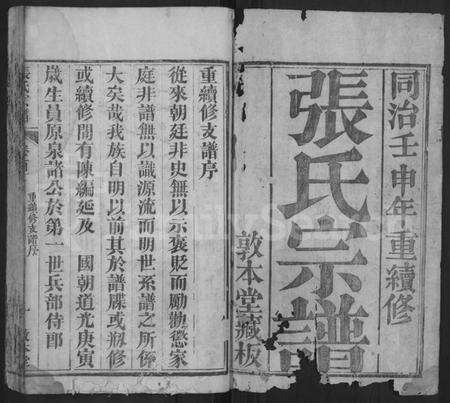 同治壬申年重續修
張氏宗譜
敦本堂藏板
重續修支譜序
從來朝廷非史無以示褒貶而勵勸懲家
庭非譜無以識源流而明世系譜之所係
大矣哉我族自明以前其於譜牒或剏修
或續修間有陳編迄及 國朝道光庚寅
歲生員原泉諸公於第一世兵部侍郎
重續修支譜序